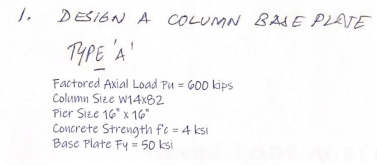 1. DESIGN A COLUMN BASE PLATE
TYPE 'A'
Factored Axial Load Pu = 600 kips
Column Size W14x82
Pier Size 16" x 16"
Concrete Strength f'c = 4 ksi
Base Plate Fy = 50 ksi